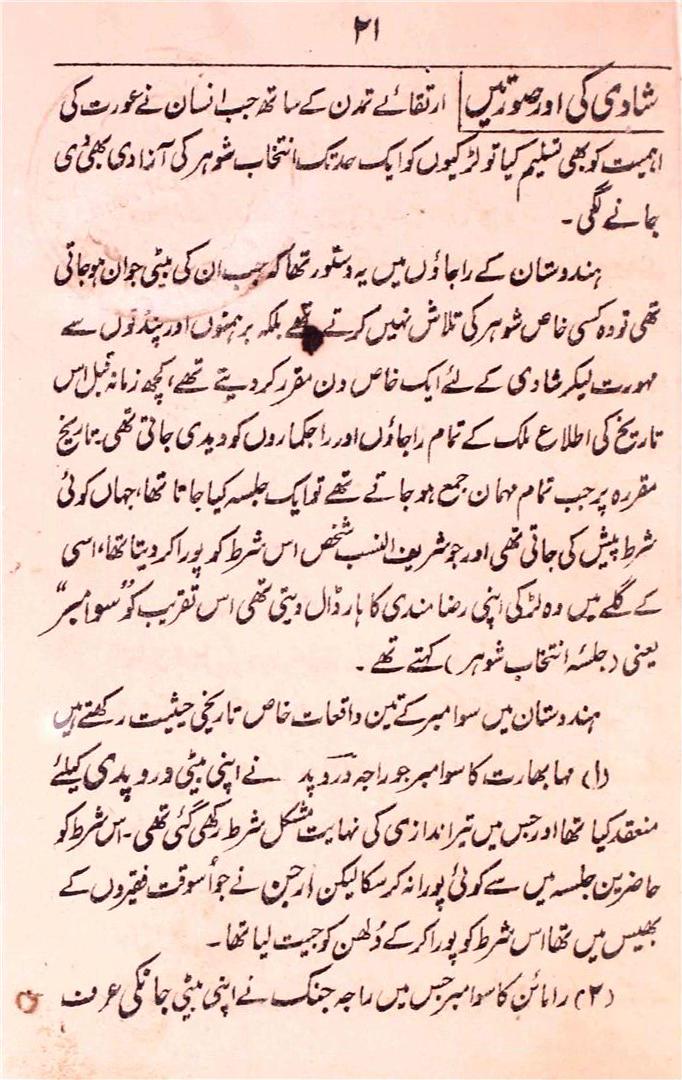 ۲۱
شادی کی اور صورتیں ارتقائے تمدن کے ساتھ جب انسان نے عورت کی
اہمیت کو بھی تسلیم کیا تو لڑکیوں کو ایک حد تک انتخاب شوہر کی آزادی بھی دی
جانے لگی۔
ہندوستان کے راجاؤں میں یہ دستور تھا کہ جب ان کی بیٹی جوان ہو جاتی
تھی تو وہ کسی خاص شوہر کی تلاش نہیں کرتے تھے بلکہ برہمنوں اور پنڈتوں سے
مہورت لیکر شادی کے لئے ایک خاص دن مقرر کر دیتے تھے، کچھ زمانہ قبل اس
تاریخ کی اطلاع ملک کے تمام راجاؤں اور راجکماروں کو دیدی جاتی تھی۔ تاریخ
مقررہ پر جب تمام مہمان جمع ہو جاتے تھے تو ایک جلسہ کیا جاتا تھا، جہاں کوئی
شرط پیش کی جاتی تھی اور جو شریف النسب شخص اس شرط کو پورا کر دیتا تھا، اسی
کے گلے میں وہ لڑکی اپنی رضا مندی کا ہار ڈال دیتی تھی اس تقریب کو “سوامبر”
یعنی (جلسۂ انتخاب شوہر) کہتے تھے۔
ہندوستان میں سوامبر کے تین واقعات خاص تاریخی حیثیت رکھتے ہیں
(۱) مہا بھارت کا سوامبر جو راجہ دروپد نے اپنی بیٹی دروپدی کیلئے
منعقد کیا تھا اور جس میں تیر اندازی کی نہایت مشکل شرط رکھی گئی تھی۔ اس شرط کو
حاضرین جلسہ میں سے کوئی پورا نہ کر سکا لیکن ارجن نے جو اُسوقت فقیروں کے
بھیس میں تھا اس شرط کو پورا کر کے دُلھن کو جیت لیا تھا۔
(۲) رامائن کا سوامبر جس میں راجہ جنک نے اپنی بیٹی جانکی عرف